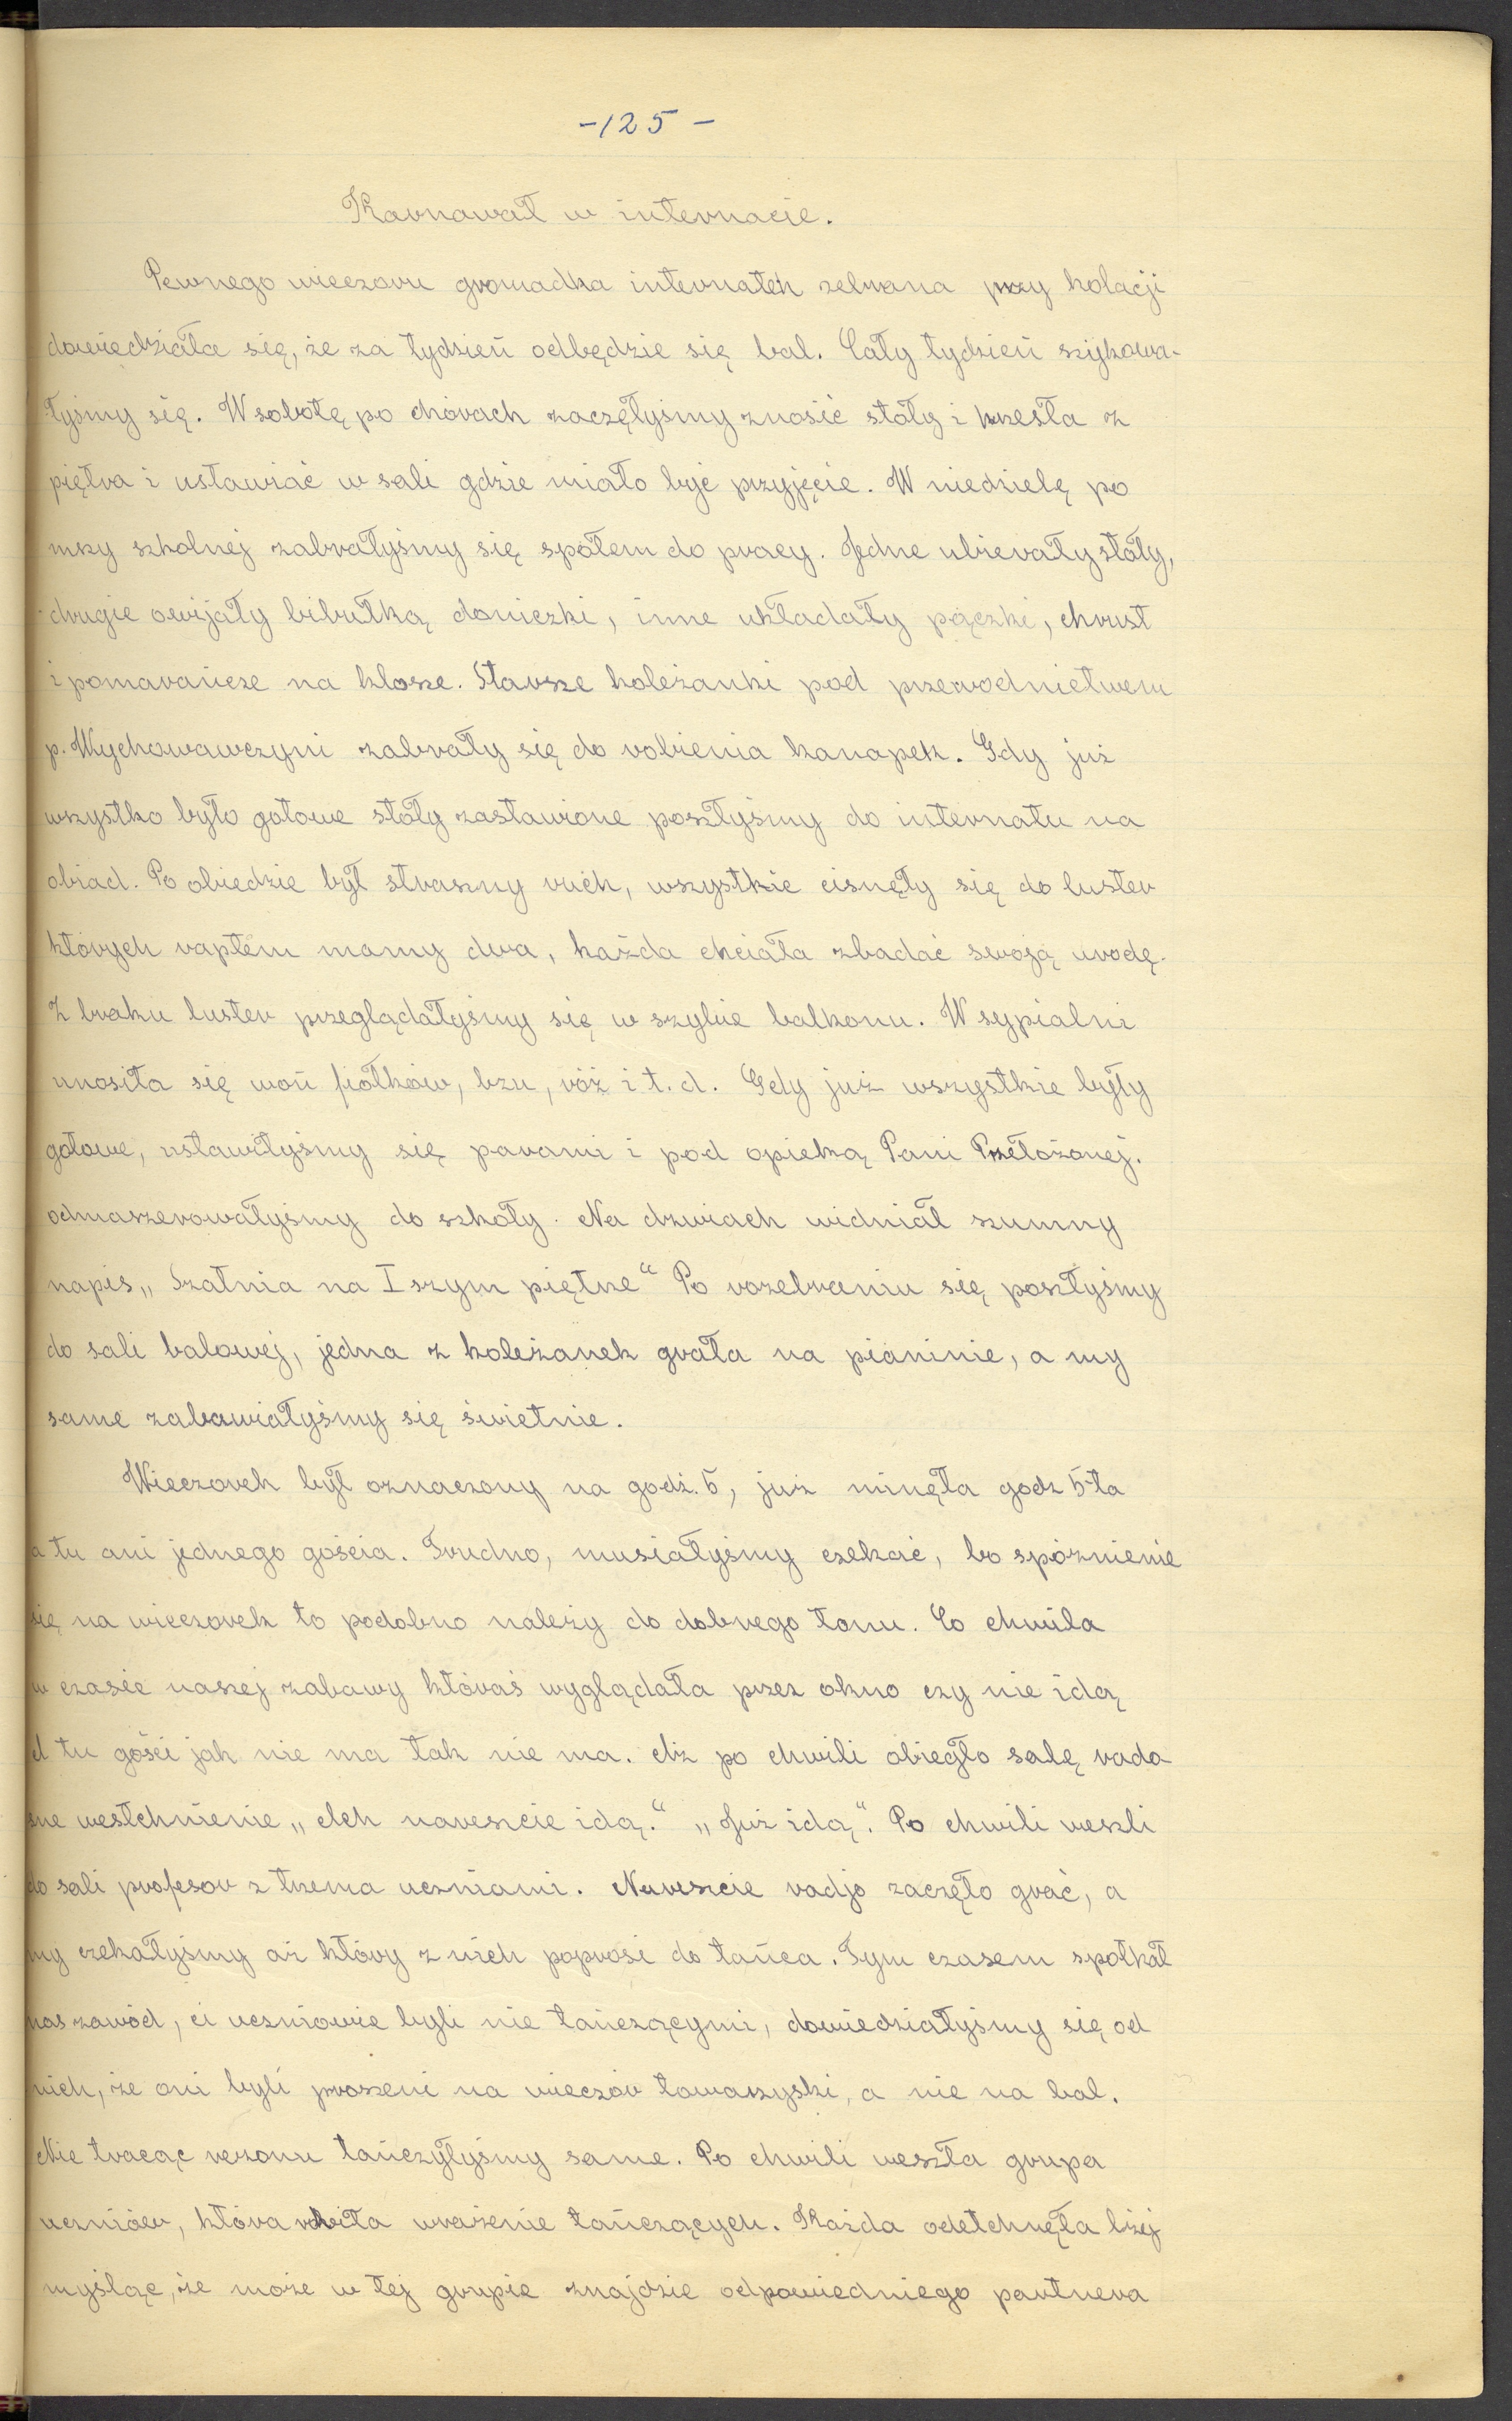 -125-
Karnawał w internacie.
Pewnego wieczoru gromadka internatek zebrana przy kolacji
dowiedziała się, że za tydzień odbędzie się bal. Cały tydzień szykowa-
łyśmy się. W sobotę po chórach zaczęłyśmy znosić stoły i krzesła z
piętra i ustawiać w sali gdzie miało być przyjęcie. W niedzielę po
mszy szkolnej zabrałyśmy się społem do pracy. Jedne ubierały stoły,
drugie owijały bibułką doniczki, inne układały pączki, chrust
i pomarańcze na klosze. Starsze koleżanki pod przewodnictwem
p. Wychowawczyni zabrały się do robienia kanapek. Gdy już
wszystko było gotowe stoły zastawione poszłyśmy do internatu na
obiad. Po obiedzie był straszny ruch, wszystkie cisnęły się do luster
których raptem mamy dwa, każda chciała zbadać swoją urodę.
Z braku luster przeglądałyśmy się w szybie balkonu. W sypialni
unosiła się woń fiołków, bzu, róż i t. d. Gdy już wszystkie były
gotowe, ustawiłyśmy się parami i pod opieką Pani Przełożonej.
odmaszerowałyśmy do szkoły. Na drzwiach widniał szumny
napis „Szatnia na I szym piętrze“ Po rozebraniu się poszłyśmy
do sali balowej, jedna z koleżanek grała na pianinie, a my
same zabawiałyśmy się świetnie.
Wieczorek był oznaczony na godź. 5, już minęła godz 5-ta
a tu ani jednego gościa. Trudno, musiałyśmy czekać, bo spóznienie
się na wieczorek to podobno należy do dobrego tonu. Co chwila
w czasie naszej zabawy któraś wyglądała przez okno czy nie idą
A tu gości jak nie ma tak nie ma. Aż po chwili obiegło salę rado
sne westchnienie „Ach nareszcie idą.“ „Już idą“. Po chwili weszli
do sali profesor z trzema uczniami. Nareszcie radjo zaczęło grać, a
my czekałyśmy aż który z nich poprosi do tańca. Tym czasem spotkał
nas zawód, ci uczniowie byli nie tańczącymi, dowiedziałyśmy się od
nich, że oni byli proszeni na wieczór towarzyski, a nie na bal.
Nie tracąc rezonu tańczyłyśmy same. Po chwili weszła grupa
uczniów, która robiła wrażenie tańczących. Każda odetchnęła lżej
myśląc, że może w tej grupie znajdzie odpowiedniego partnera